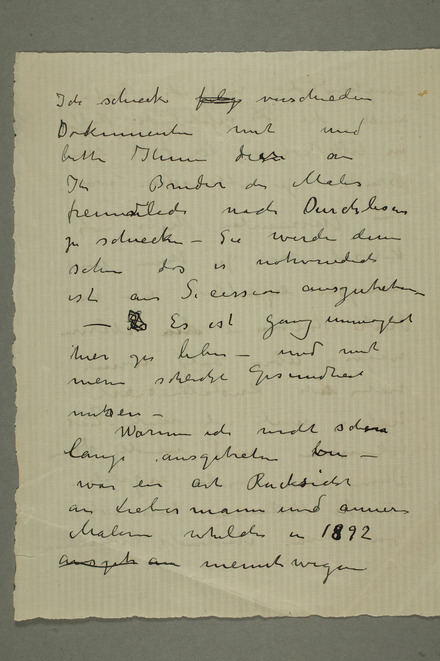 Ich schicke verschieden
Dokumenten mit und
bitte Ihnen diese an
Ihr Bruder der Maler
freundlich nach Durchlesen
zu schicken – Sie werde dann
sehen das is nothwendich
ist aus Secession auszutreten
– Es ist ganz unmoglich
hier zu leben – und mit
meine schlecht Gesundheit
Warum ich nicht schon
lange ausgetreten bin –
war ein art Rücksicht
an Liebermann und annere
Malern in 1892
meinetwegen